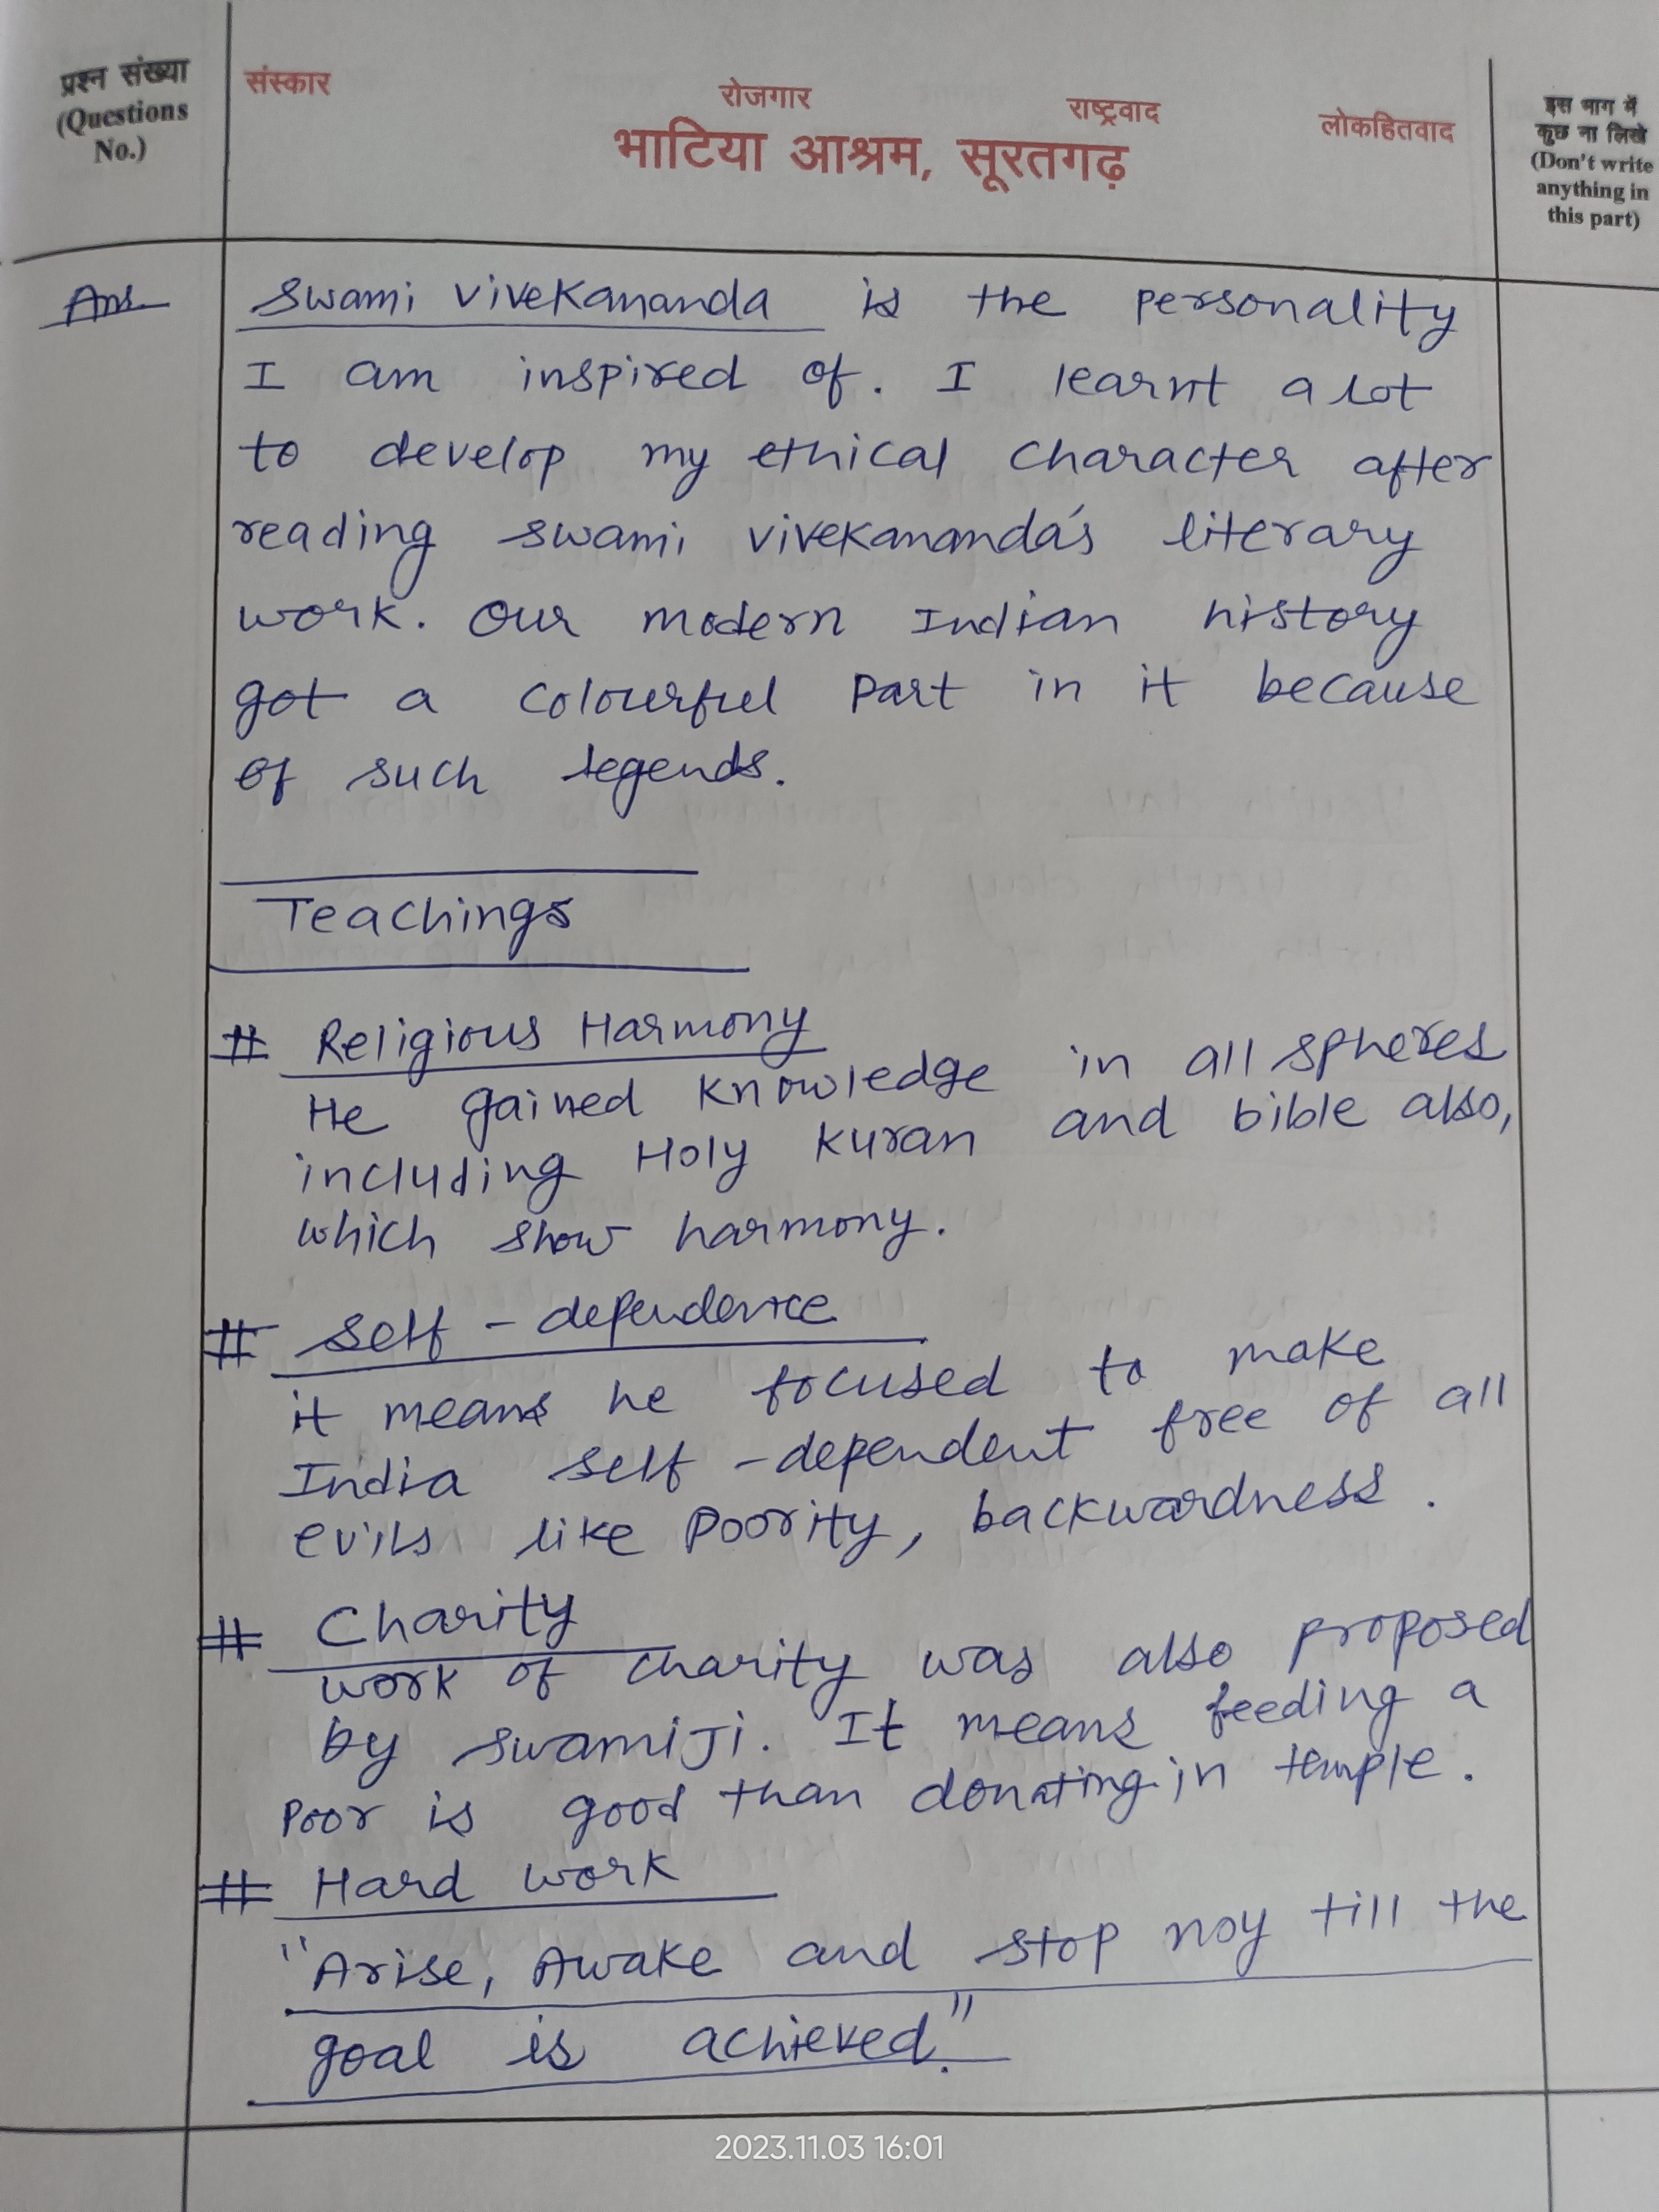 प्रश्न संख्या
(Questions
No.)
संस्कार
रोजगार
राष्ट्रवाद
लोकहितवाद
भाटिया आश्रम, सूरतगढ़
इस भाग में
कुछ ना लिखे
(Don't write
anything in
this part)
Ans
Swami Vivekananda is the personality
I am inspired of. I learnt a lot
to develop my ethical character after
reading swami vivekananda's literary
work. Our modern Indian history
got a colourful part in it because
of such legends.
Teachings
# Religious Harmony
He gained knowledge in all spheres
including Holy Kuran and bible also,
which show harmony.
# Self - dependence
it means he focused to make
India self - dependent free of all
evils like Poority, backwardness.
# Charity
work of charity was also proposed
by swamiji. It means feeding a
Poor is good than donating in temple.
# Hard work
"Arise, Awake and stop noy till the
goal is achieved."
2023.11.03 16:01